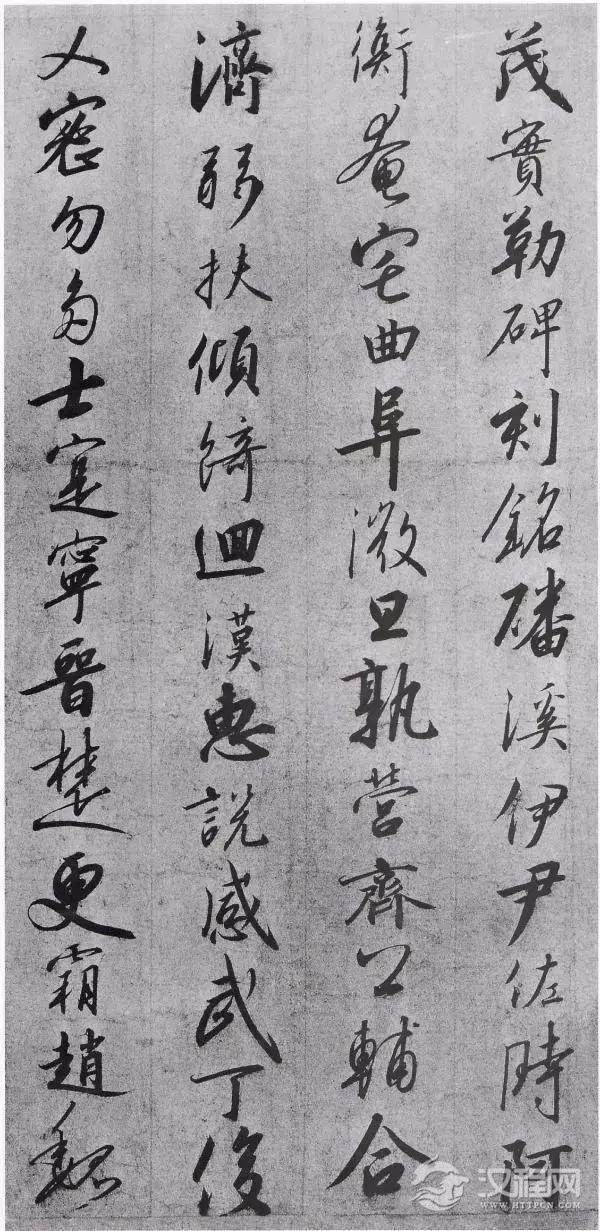 茂實勒碑刻銘磻溪伊尹佐時阿
衡奄宅曲阜微旦孰營齊公輔合
濟弱扶傾綺迴漢惠說感武丁俊
乂密勿多士寔寧晉楚更霸趙魏
汉程网
WWW.HTTPCN.COM